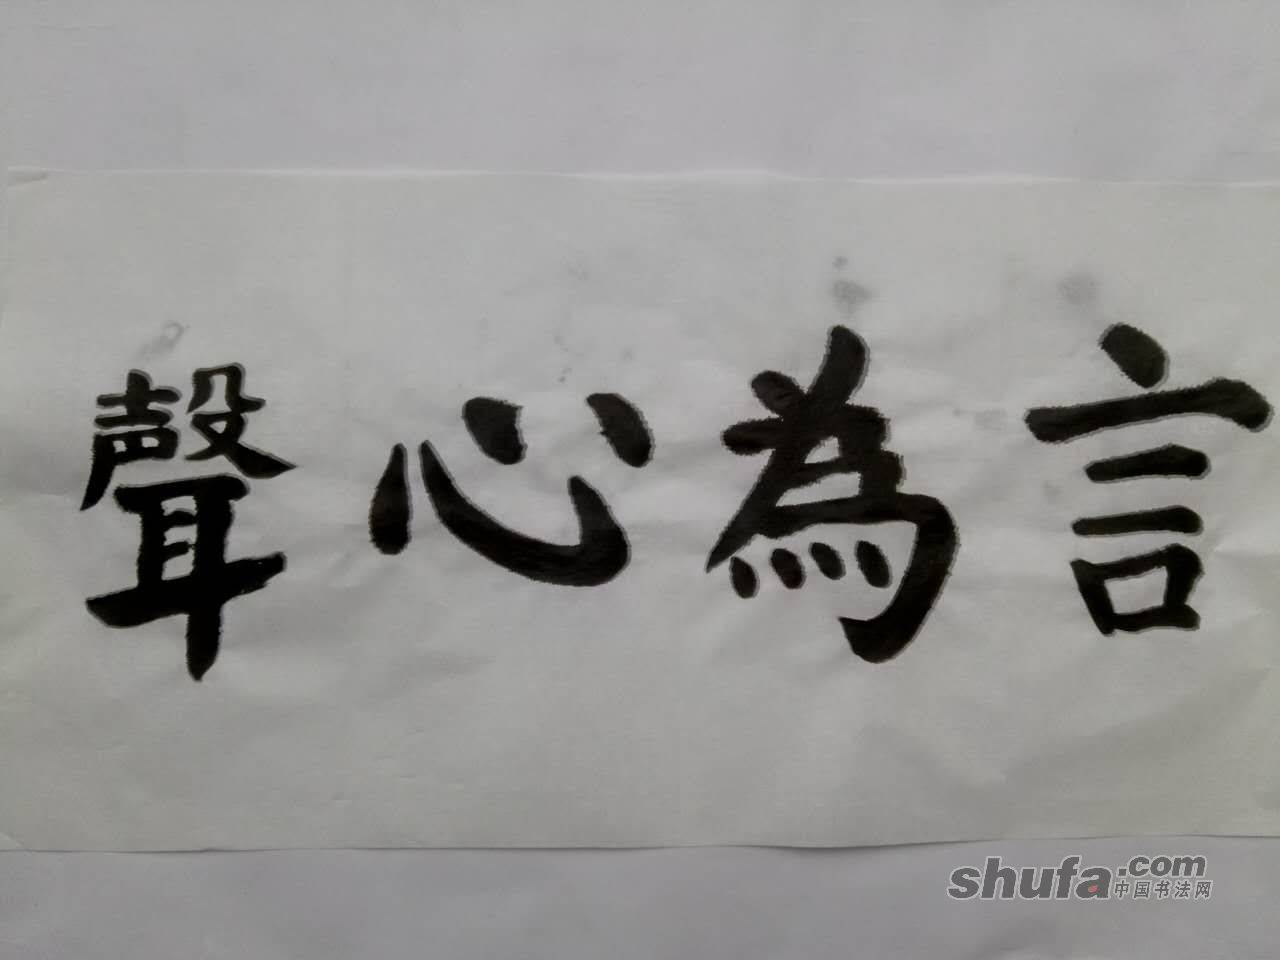 言為心聲
shufa.com
中国书法网